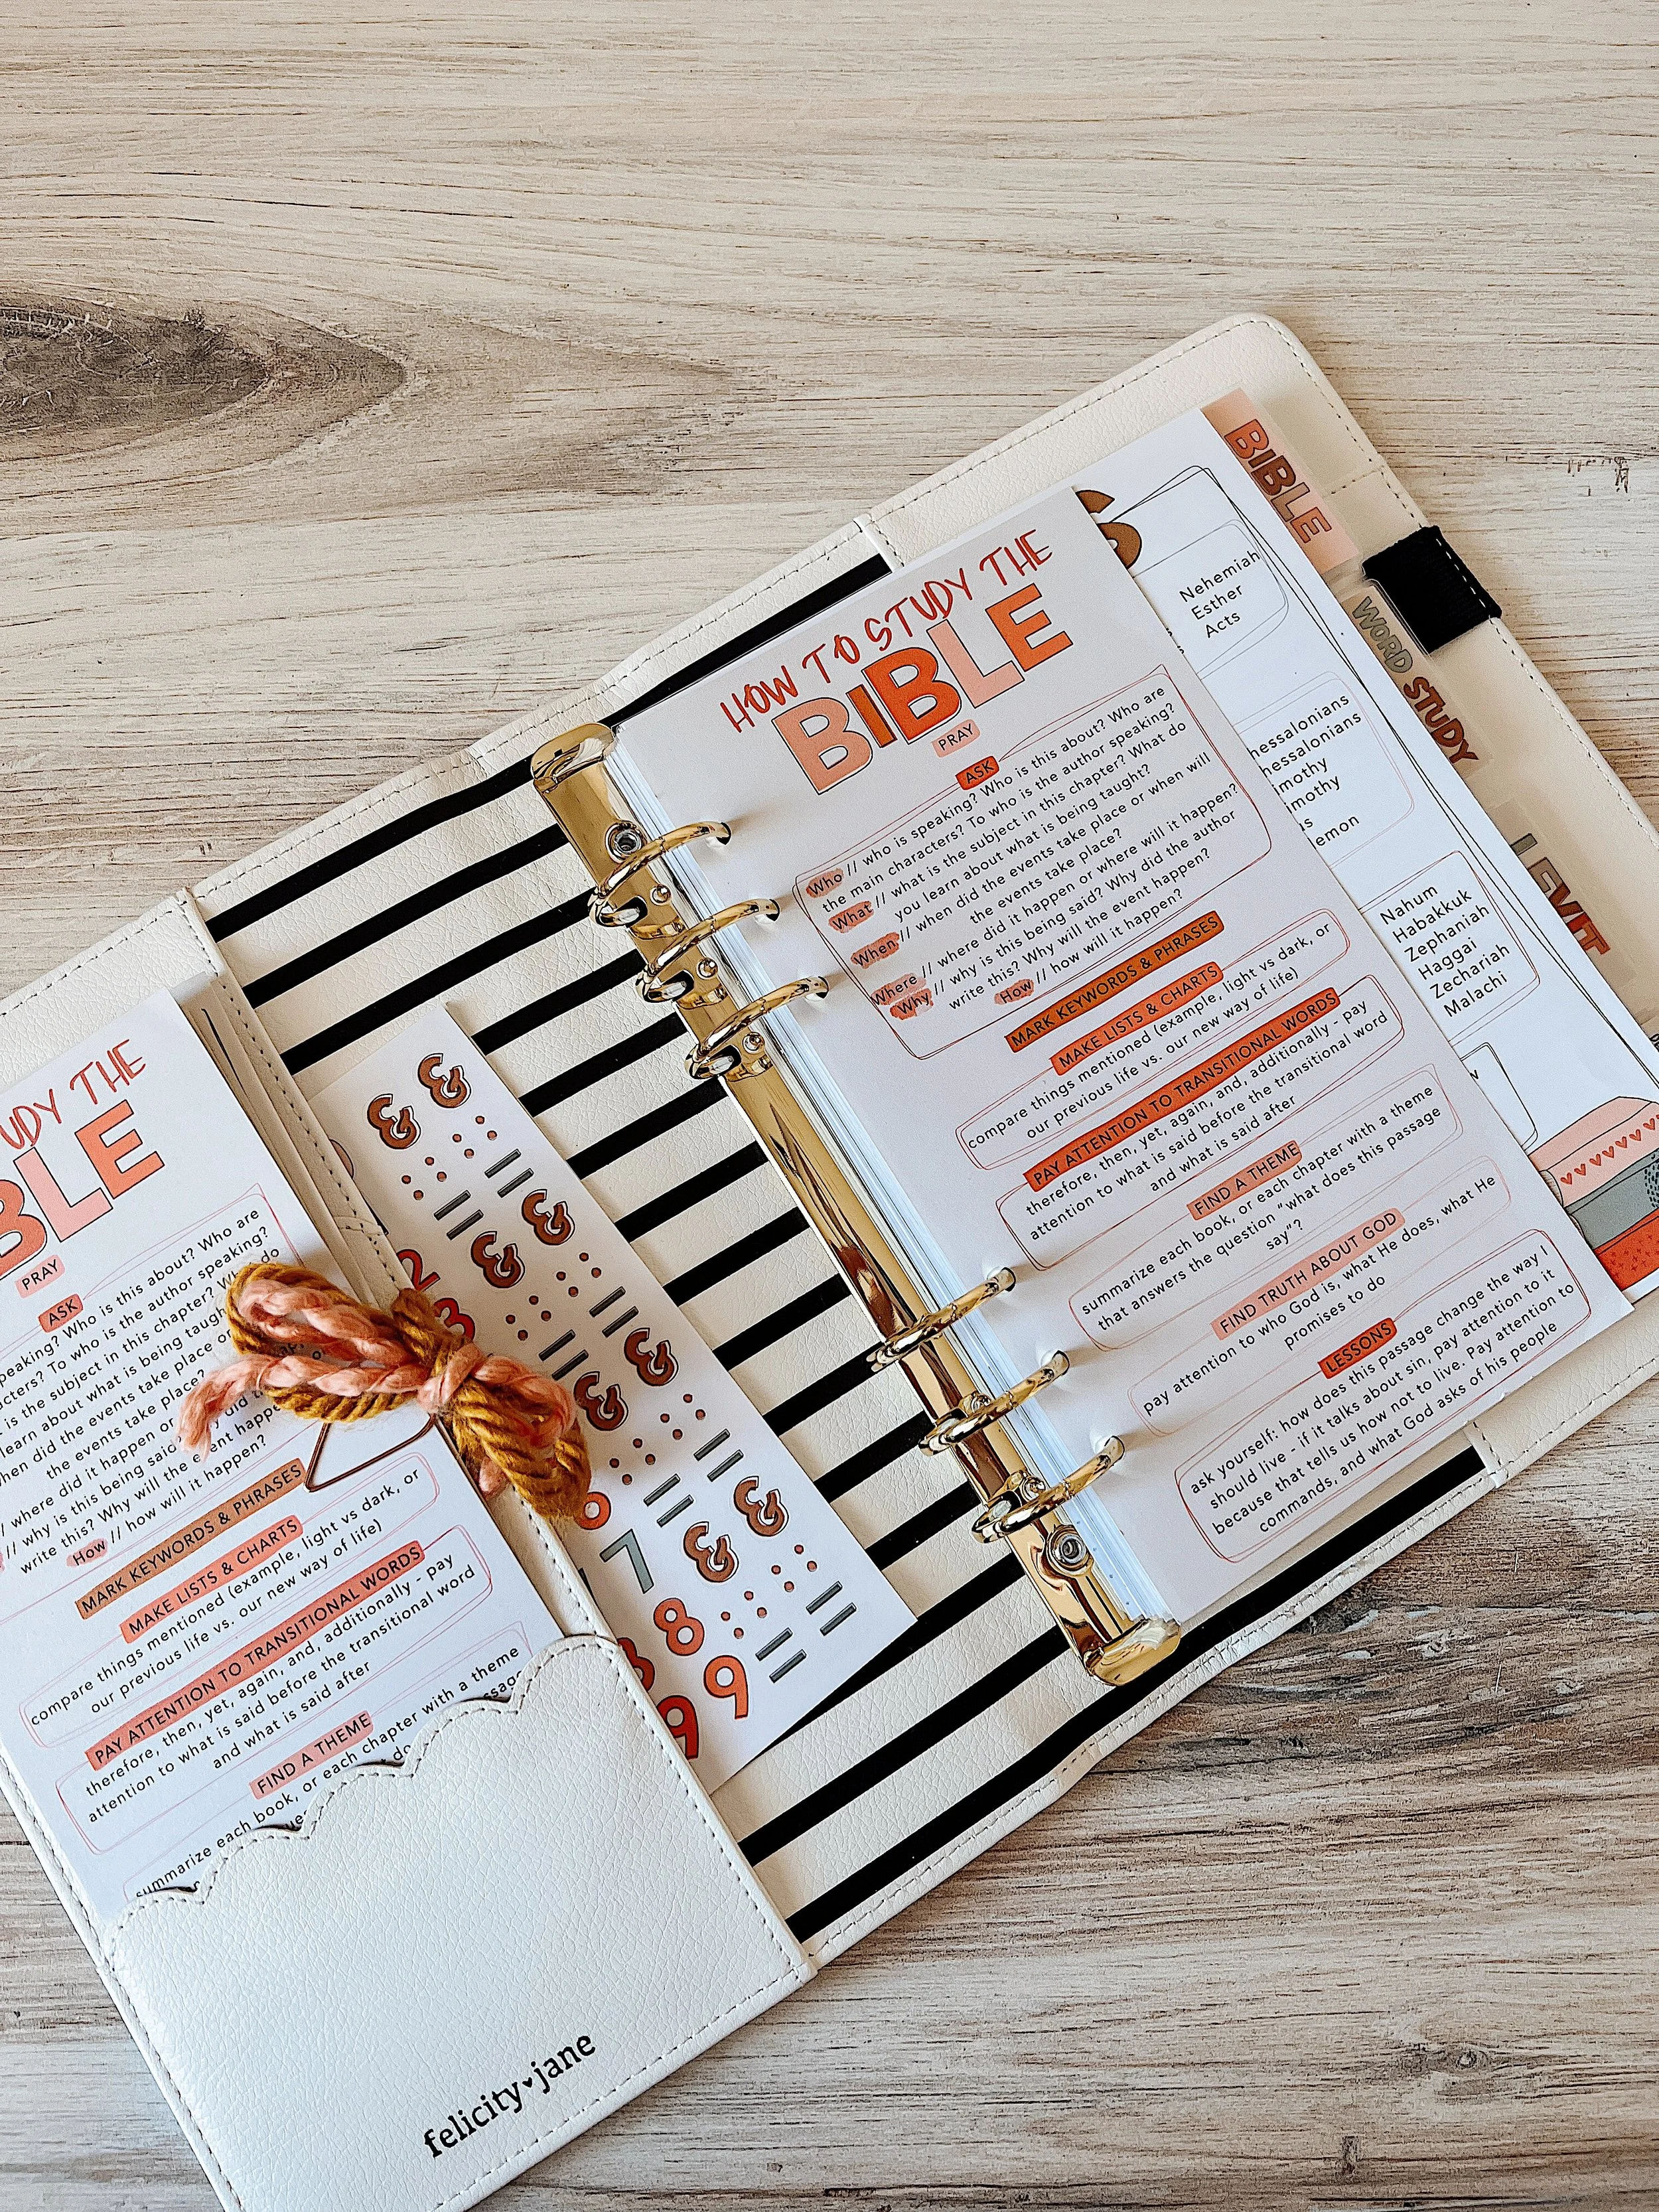 HOW TO STUDY THE
BIBLE
PRAY
ASK
Who // who is speaking? Who is this about? Who are
the main characters? To who is the author speaking?
What // what is the subject in this chapter? What do
you learn about what is being taught?
When // when did the events take place or when will
the events take place?
Where // where did it happen or where will it happen?
Why // why is this being said? Why did the author
write this? Why will the event happen?
How // how will it happen?
MARK KEYWORDS & PHRASES
MAKE LISTS & CHARTS
compare things mentioned (example, light vs dark, or
our previous life vs. our new way of life)
PAY ATTENTION TO TRANSITIONAL WORDS
therefore, then, yet, again, and, additionally - pay
attention to what is said before the transitional word
and what is said after
FIND A THEME
summarize each book, or each chapter with a theme
that answers the question "what does this passage
say"?
FIND TRUTH ABOUT GOD
pay attention to who God is, what He does, what He
promises to do
LESSONS
ask yourself: how does this passage change the way I
should live - if it talks about sin, pay attention to it
because that tells us how not to live. Pay attention to
commands, and what God asks of his people
S
Nehemiah
Esther
Acts
hessalonians
hessalonians
mothy
mothy
us
emon
Nahum
Habakkuk
Zephaniah
Haggai
Zechariah
Malachi
BIBLE
WORD STUDY
LEVIT
UDY THE
BLE
PRAY
ASK
peaking? Who is this about? Who are
acters? To who is the author speaking?
t is the subject in this chapter? Wh do
learn about what is being taugh
hen did the events take place or
the events take place?
/ where did it happen or
// why is this being said? y did
write this? Why will the e ent happe
How // how will it happen?
MARK KEYWORDS & PHRASES
MAKE LISTS & CHARTS
compare things mentioned (example, light vs dark, or
our previous life vs. our new way of life)
PAY ATTENTION TO TRANSITIONAL WORDS
therefore, then, yet, again, and, additionally - pay
attention to what is said before the transitional word
and what is said after
FIND A THEME
summarize each book, or each chapter with a theme
2
3
6
7
8
9
9
felicity jane